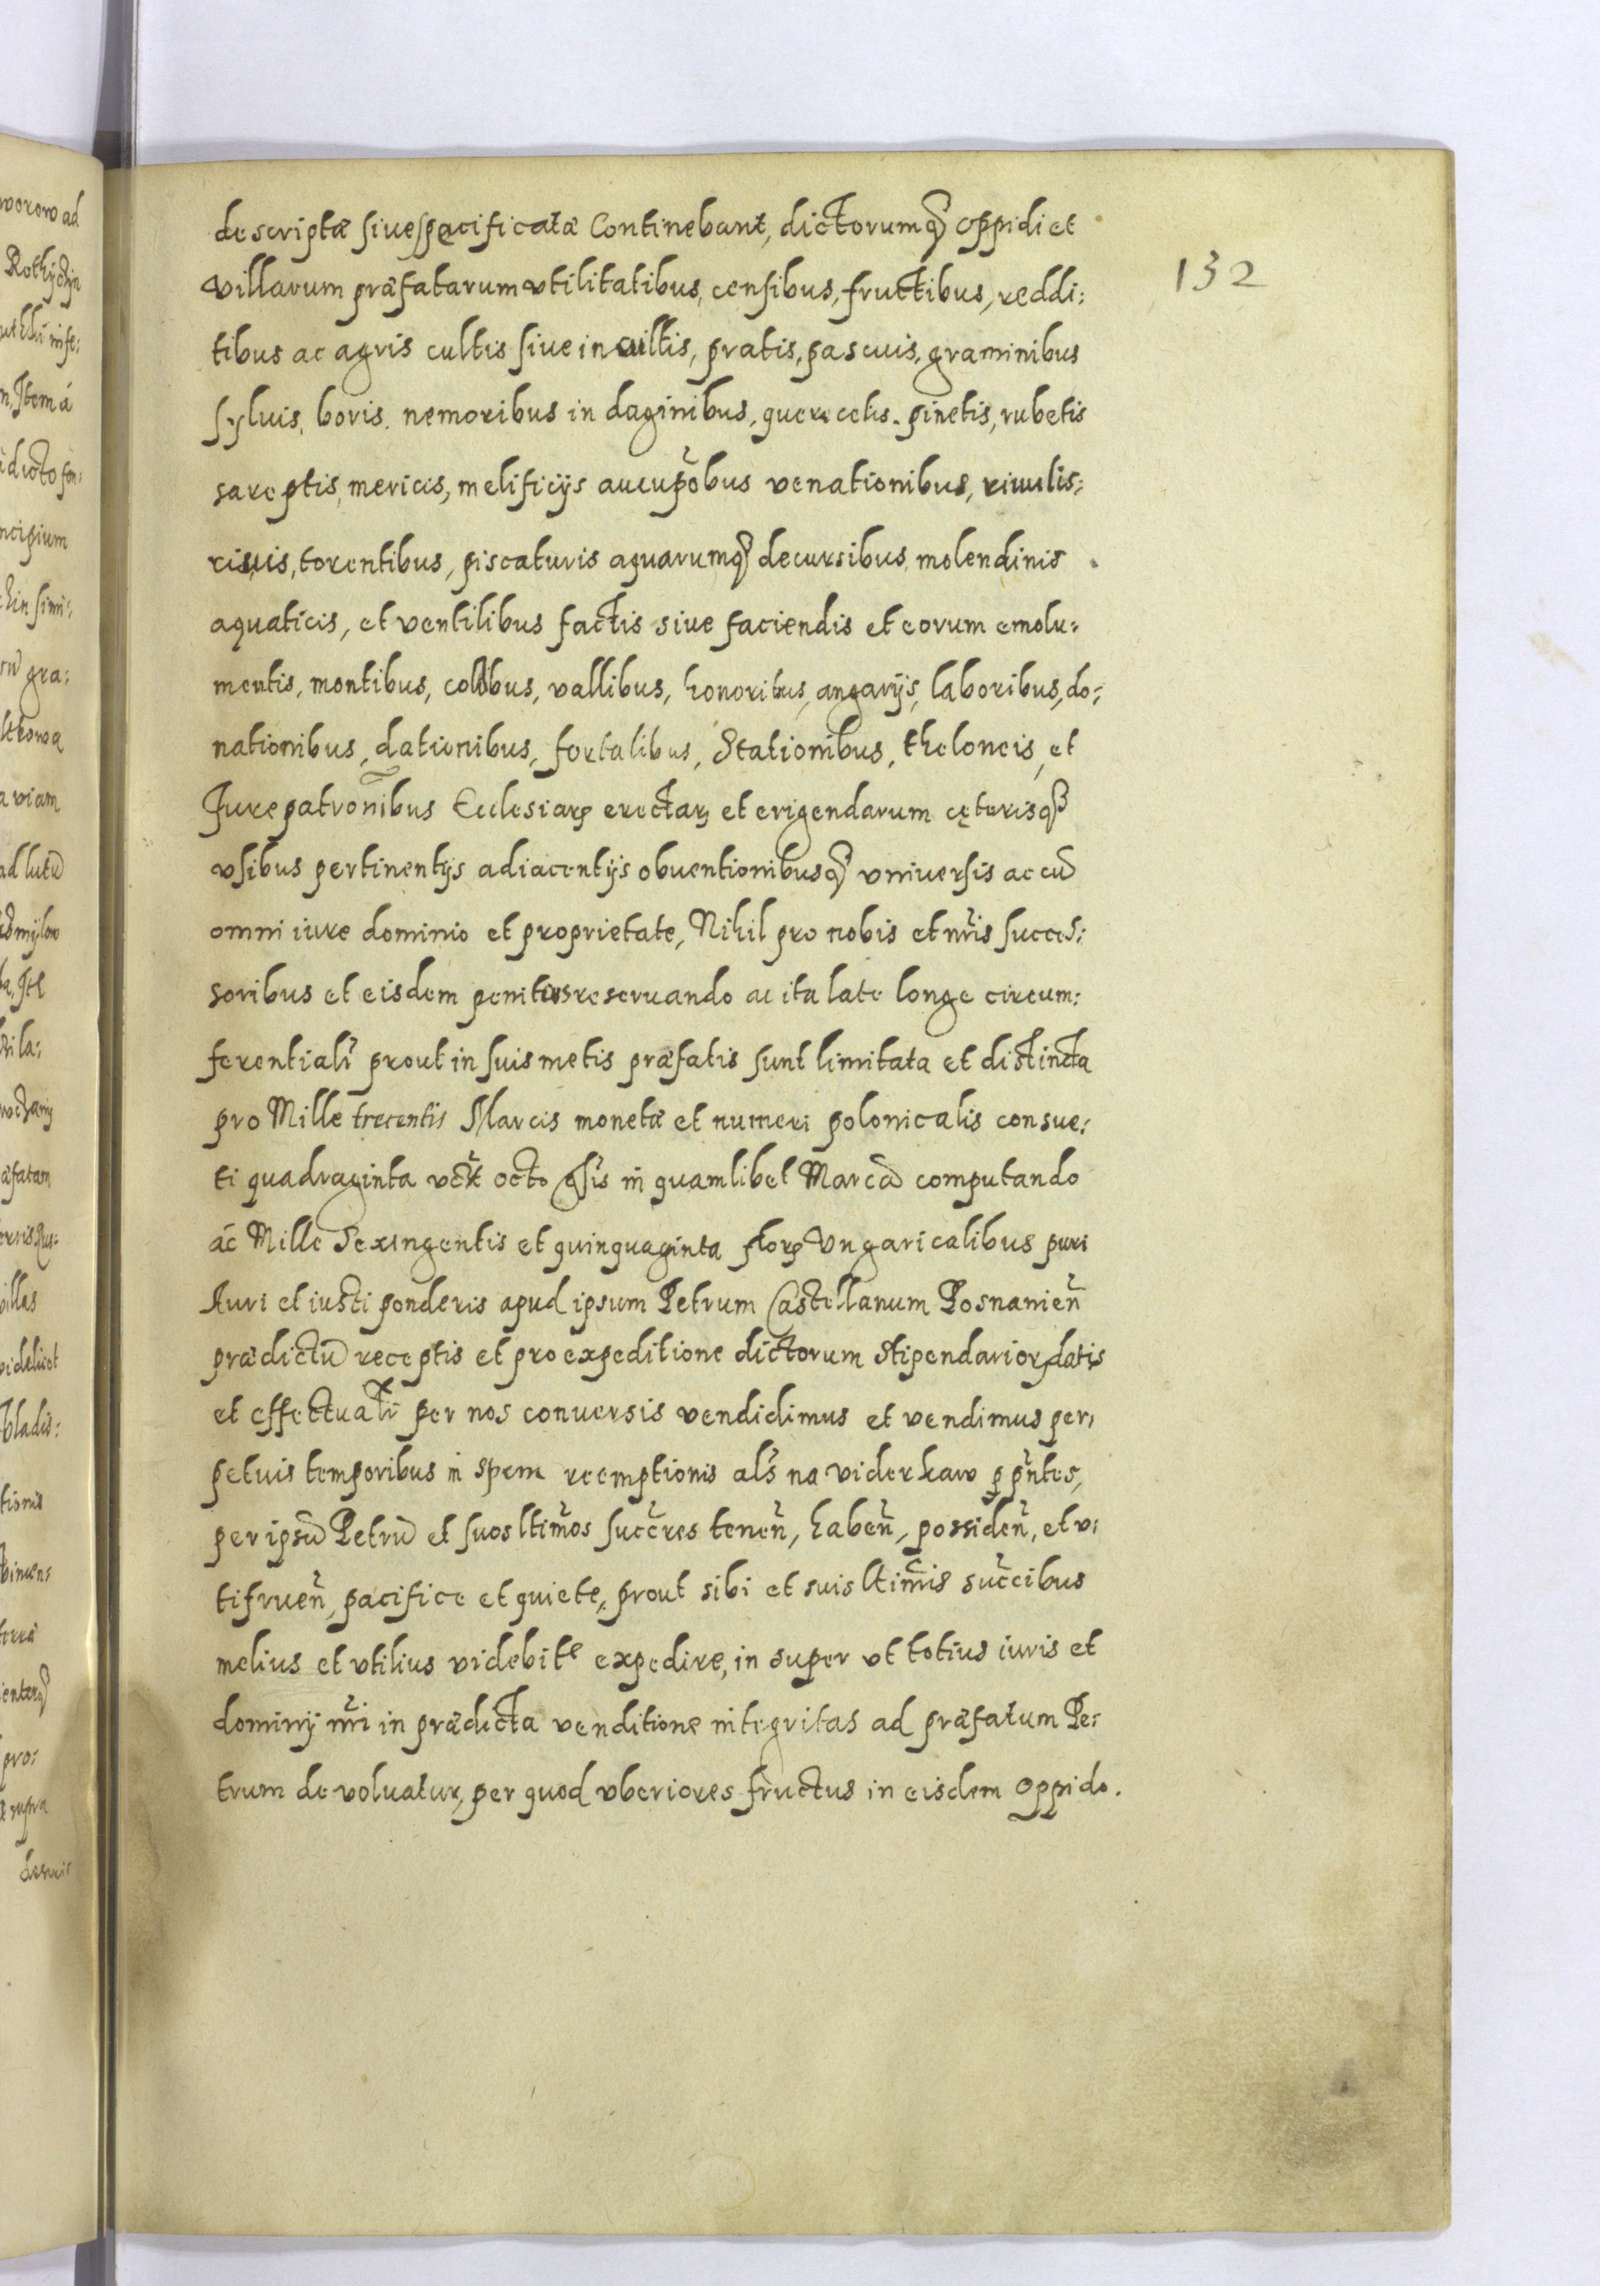 descriptæ siue specificatæ Continebant, dictorumq₃ Oppidi et
132
villarum præfatarum vtilitatibus, censibus, fructibus, reddi:
tibus ac agris cultis siue in cultis, pratis, pascuis, graminibus
syluis, boris, nemoribus in daginibus, quercetis, pinetis, rubetis
sareptis, mericis, melificijs aucupõbus venationibus, riuulis:
riuis, torentibus, piscaturis aquarumq₃ decursibus, molendinis
aquaticis, et ventilibus factis siue faciendis et eorum emolu:
mentis, montibus, collibus, vallibus, honoribus, angarijs, laboribus, do:
nationibus, dationibus, fortalibus, Stationibus, theloneis, et
Jurepatron̄ibus Ecclesiarꝝ erectarꝝ et erigendarum cęterisq₃
vsibus pertinentijs adiacentijs obuentionibusq₃ vniuersis ac cū
omni iure dominio et proprietate, Nihil pro nobis et nr̃is succes:
soribus et eisdem penitus reseruando ac ita late longe circum:
ferentialr̃ prout in suis metis præfatis sunt limitata et distincta
pro Mille trecentis Marcis monetæ et numeri polonicalis consue:
ti quadraginta vcꝫ octo gr̃sis in quamlibet Marcā computando
ac Mille Sexingentis et quinquaginta florꝝ Vngaricalibus puri
Auri et iusti ponderis apud ipsum Petrum Castellanum Posnanien̄
prædictū receptis et pro expeditione dictorum Stipendariorꝝ datis
et effectualr̃ per nos conuersis vendidimus et vendimus per,
petuis temporibus in spem reemptionis als̃ na viderkaw ꝑ p̃ntes,
per ipsū Petrū et suos ltim̃os succ̃res tenen̄, haben̄, possiden̄, et v:
tifruen̄, pacifice et quiete, prout sibi et suis ltim̃is succ̃ibus
melius et vtilius videbitᵉ expedire, in super vt totius iuris et
dominij nr̃i in prædicta venditione integritas ad præfatum Pe:
trum deuoluatur, per quod vberiores fructus in eisdem Oppido.